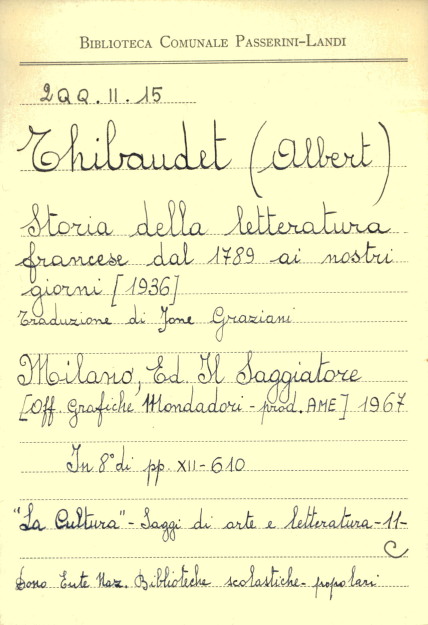 BIBLIOTECA COMUNALE PASSERINI-LANDI
2QQ.II.15
Thibaudet (Albert)
Storia della letteratura
francese dal 1789 ai nostri
giorni [1936]
Traduzione di Jone Graziani
Milano, Ed. Il Saggiatore
[Off. Grafiche Mondadori - prod. AME] 1967
In 8° di pp. XII-610
"La Cultura" - Saggi di arte e letteratura -11-
C
Dono Ente Naz. Biblioteche scolastiche - popolari